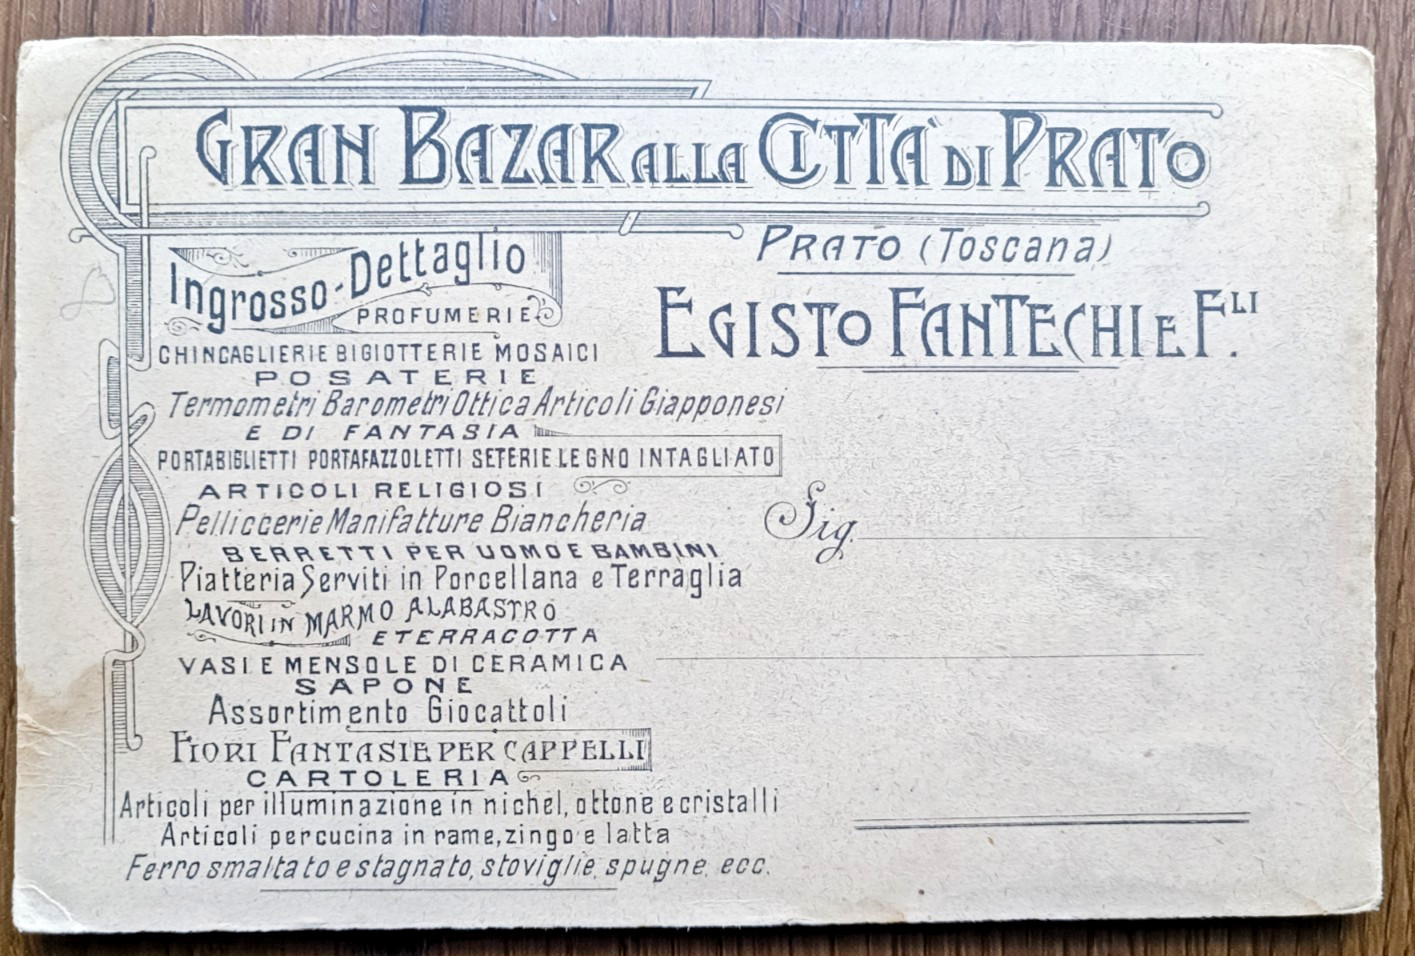 GRAN BAZAR ALLA CITTÀ DI PRATO
PRATO (Toscana)
EGISTO FANTECHI E F.LLI
Ingrosso-Dettaglio
PROFUMERIE
CHINCAGLIERIE BIGIOTTERIE MOSAICI
POSATERIE
Termometri Barometri Ottica Articoli Giapponesi
E DI FANTASIA
PORTABIGLIETTI PORTAFAZZOLETTI SETERIE LEGNO INTAGLIATO
ARTICOLI RELIGIOSI
Pelliccerie Manifatture Biancheria
BERRETTI PER UOMO E BAMBINI
Piatteria Serviti in Porcellana e Terraglia
LAVORI IN MARMO ALABASTRO
E TERRACOTTA
VASI E MENSOLE DI CERAMICA
SAPONE
Assortimento Giocattoli
FIORI FANTASIE PER CAPPELLI
CARTOLERIA
Articoli per illuminazione in nichel, ottone e cristalli
Articoli per cucina in rame, zingo e latta
Ferro smaltato e stagnato, stoviglie, spugne, ecc.
Sig.